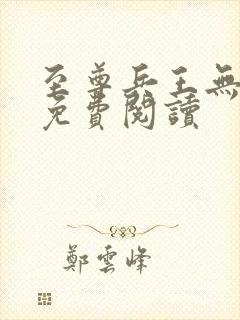 至尊兵王無
免費閱讀
鄭雲峰